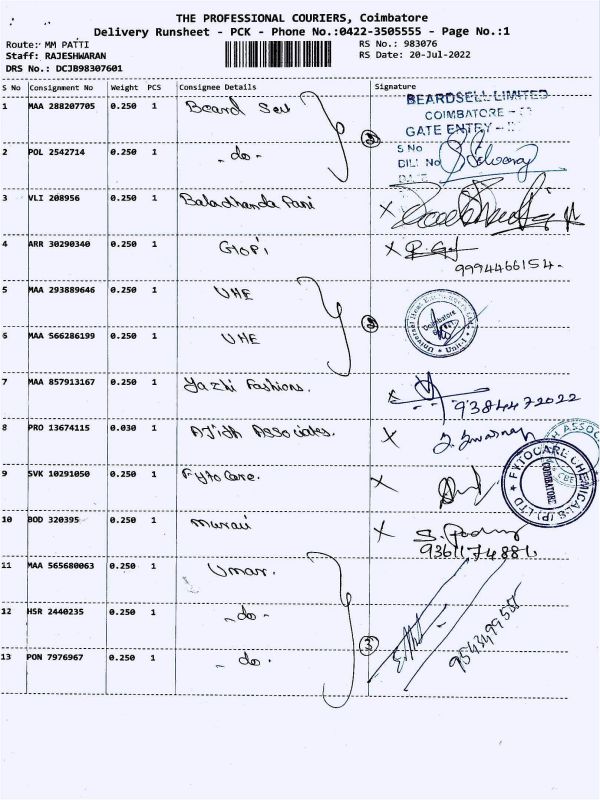 THE PROFESSIONAL COURIERS, Coimbatore
Delivery Runsheet - PCK - Phone No.:0422-3505555 - Page No.:1
Route: MM PATTI RS No.: 983076
Staff: RAJESHWARAN RS Date: 20-Jul-2022
DRS No.: DCJB98307601
S No Consignment No Weight PCS Consignee Details Signature
1 MAA 288207705 0.250 1 Beard Sell
BEARDSELL LIMITED
COIMBATORE
GATE ENTRY
2
2 POL 2542714 0.250 1 - do -
S No
DILL No
DATE
3 VLI 208956 0.250 1 X
4 ARR 30290340 0.250 1 Gopi X
9994466154.
5 MAA 293889646 0.250 1 UHE
2
Coimbatore
6 MAA 566286199 0.250 1 UHE
7 MAA 857913167 0.250 1 Yazhi Fashions. X
9384472022
8 PRO 13674115 0.030 1 Ajith Associates. X
ASSOC
9 SVK 10291050 0.250 1 Fyto Care. X
FYTOCARE CHEMICALS (P) LTD
COIMBATORE
CBE
10 BOD 320395 0.250 1 Murali X
9361174881
11 MAA 565680063 0.250 1 Umar.
12 HSR 2440235 0.250 1 - do -
3
13 PON 7976967 0.250 1 - do -